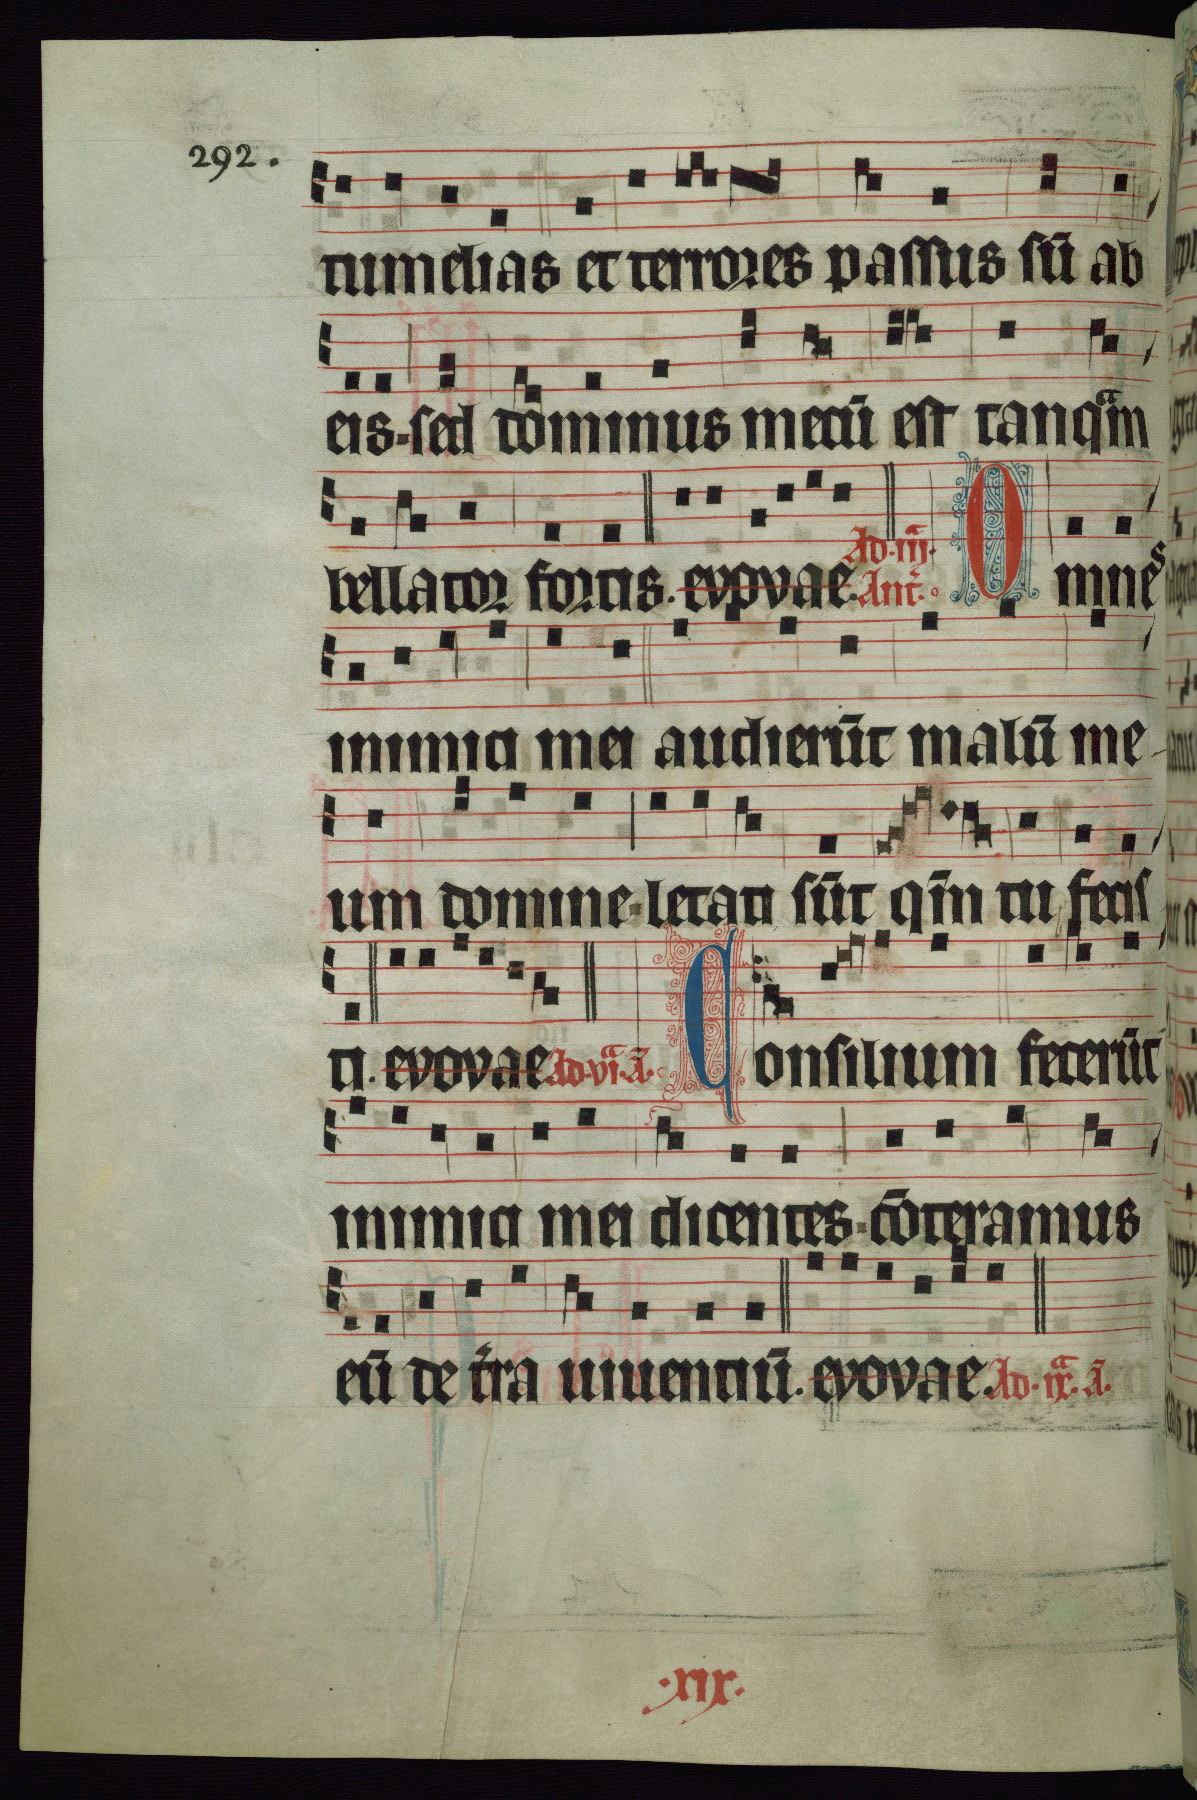 292.
tumelias et terrores passus sū ab
eis sed dominus mecū est tanqᵃm
bellator fortis. evovae. Ad .iij.ᵃ Ant̄. Omnes
inimici mei audierūt malū me-
um domine letati sūt qm̄ tu fecis
ti. evovae Ad .vi.ᵃ ā. Consilium fecerūt
inimici mei dicentes cōteramus
eū de t̄ra uiuentiū. evovae. Ad .ix.ᵃ ā.
.xix.